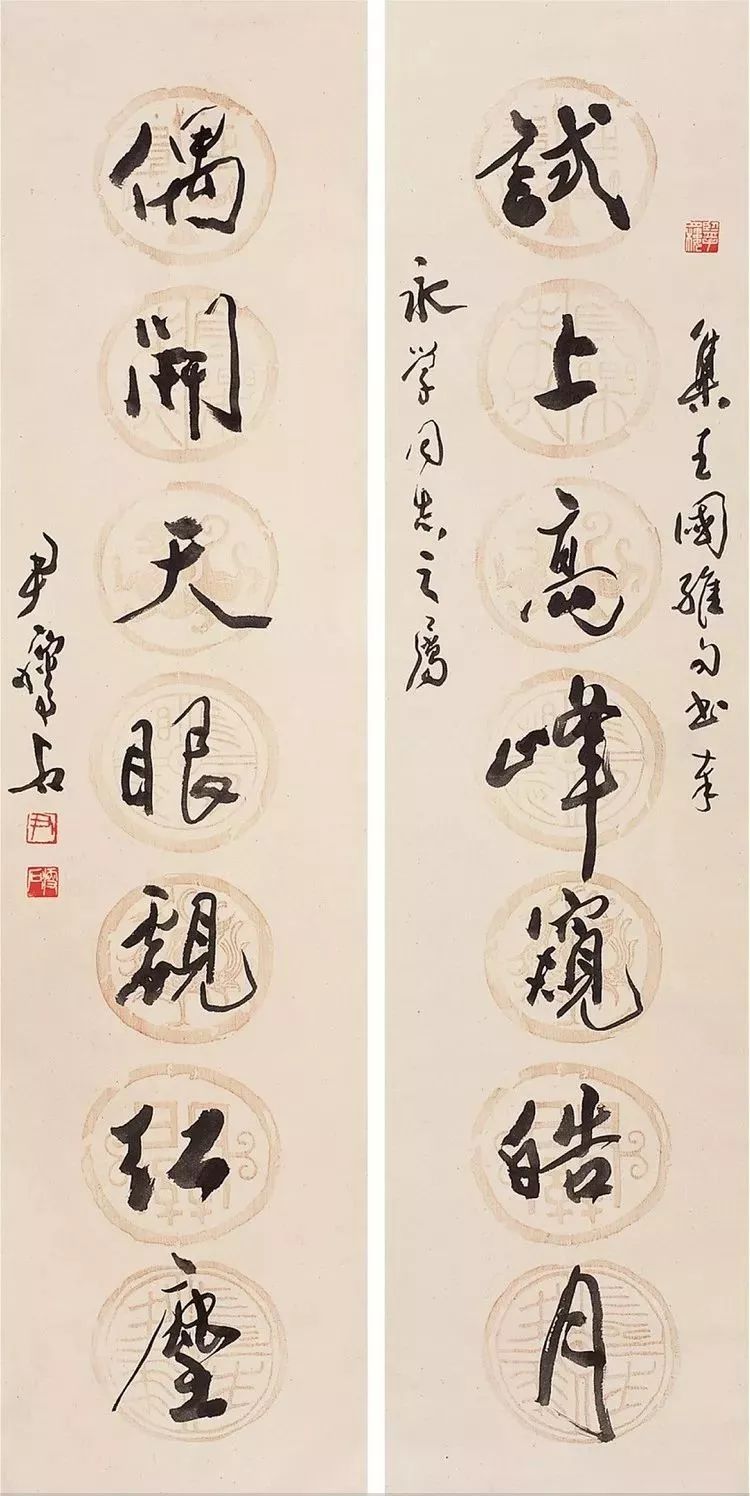 集王國維句書奉
試上高峰窺皓月
永學同志之屬
偶開天眼覷紅塵
尹瘦石
尹
瘦石